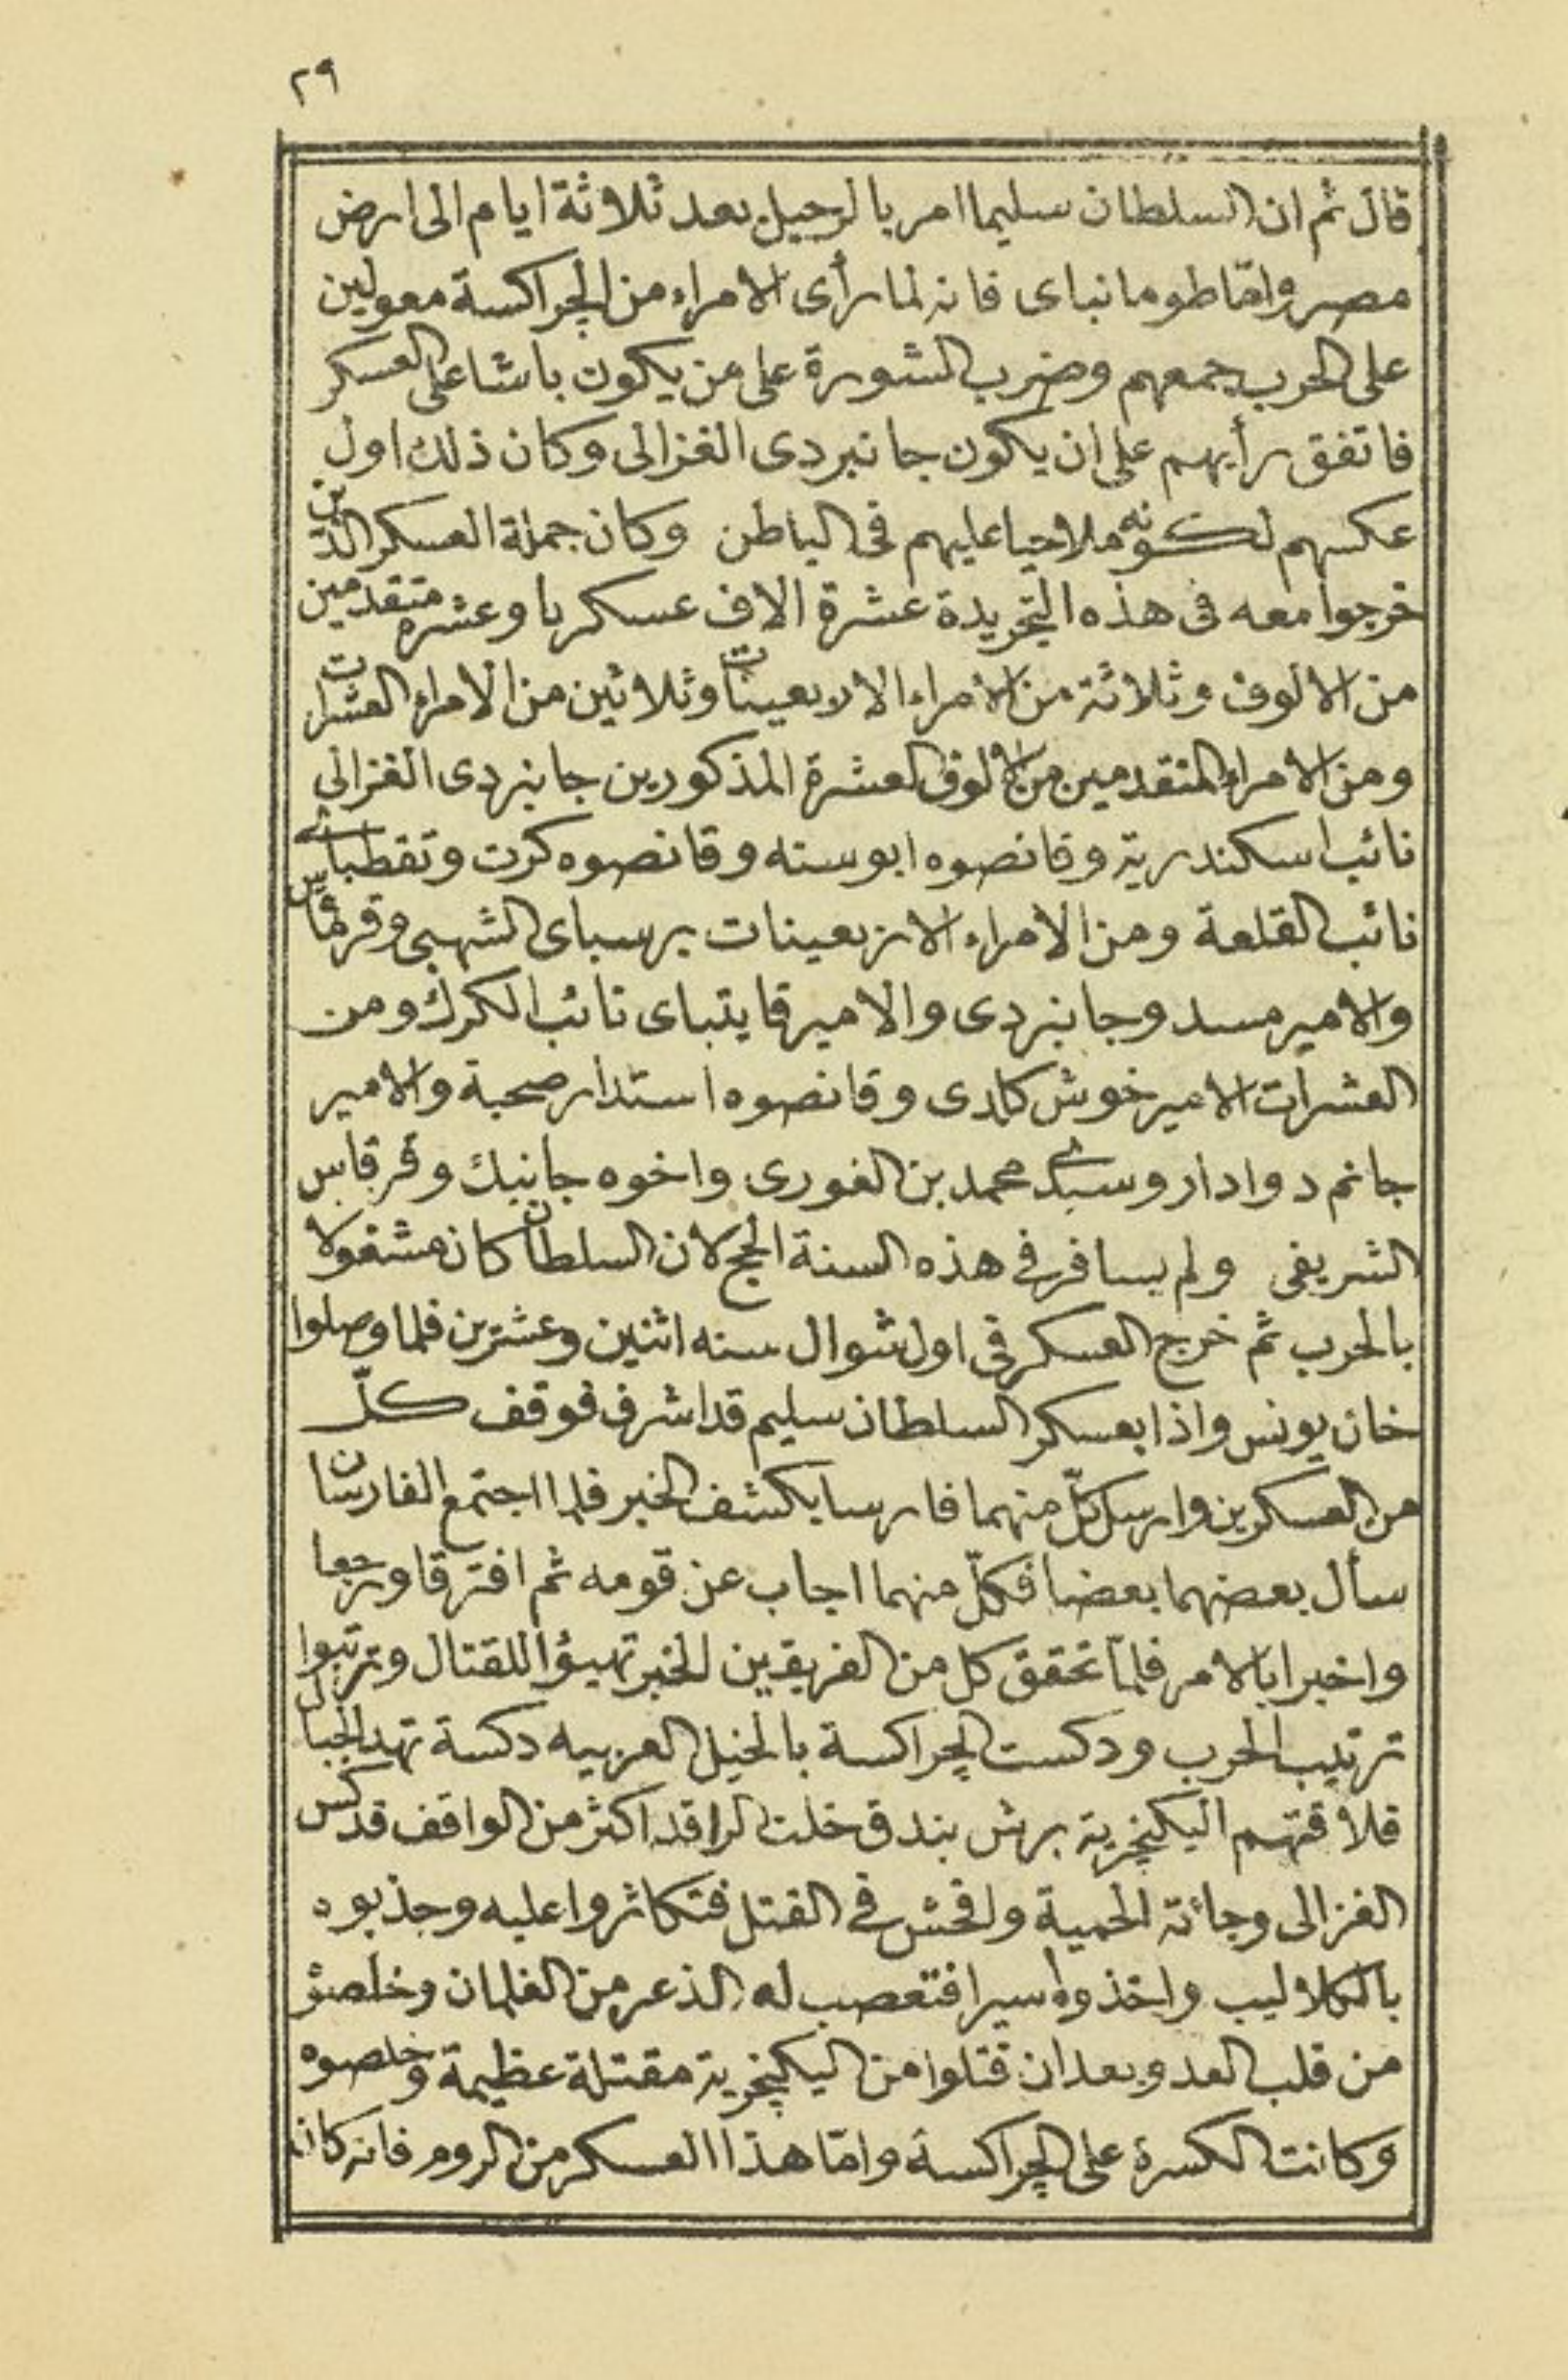 ٢٩
قال ثم ان السلطان سليما امر بالرحيل بعد ثلاثة ايام الى ارض
مصر وامّا طومانباى فانه لما رأى الامراء من الچراكسة معولين
على الحرب جمعهم وضرب الشورة على من يكون باشا على العسكر
فاتفق رأيهم على ان يكون جانبردى الغزالى وكان ذلك اول
عكسهم لكونه ملاحيا عليهم فى الباطن وكان جملة العسكر الذين
خرجوا معه فى هذه التجريدة عشرة الاف عسكريا وعشره متقدمين
من الالوف وثلاثة من الامراء الاربعينات وثلاثين من الامراء العشرات
ومن الامراء المتقدمين من الالوف العشرة المذكورين جانبردى الغزالى
نائب اسكندرية وقانصوه ابوسنه وقانصوه كرت وتقطباى
نائب القلعة ومن الامراء الاربعينات برسباى الشهبى وقرقماس
والامير مسد وجانبردى والامير قايتباى نائب الكرك ومن
العشرات الامير خوش كلدى وقانصوه استدار صحبة والامير
جانم دوادار وسيدى محمد بن الغورى واخوه جانبك وقرقاس
الشريفى ولم يسافر فى هذه السنة الحج لان السلطان كان مشغولا
بالحرب ثم خرج العسكر فى اول شوال سنه اثنين وعشرين فلما وصلوا
خان يونس واذا بعسكر السلطان سليم قد اشرف فوقف كلّ
من العسكرين وارسل كلّ منهما فارسا يكشف الخبر فلما اجتمع الفارسان
سأل بعضهما بعضا فكلّ منهما اجاب عن قومه ثم افترقا ورجعا
واخبرا بالامر فلمّا تحقق كل من الفريقين الخبر تهيؤا للقتال وترتبوا
ترتيب الحرب ودكست الچراكسة بالخيل العربيه دكسة تهد الجبال
فلاقتهم اليكنچرية برش بندق خلت الراقد اكثر من الواقف فدكس
الغزالى وجائته الحمية وافحش فى القتل فتكاثروا عليه وجذبوه
بالكلاليب واخذوه أسيرا فتعصب له الذعر من الغلمان وخلصوه
من قلب العدو بعد ان قتلوا من اليكنچرية مقتلة عظيمة وخلصوه
وكانت الكسرة على الچراكسة وامّا هذا العسكر من الروم فانه كان